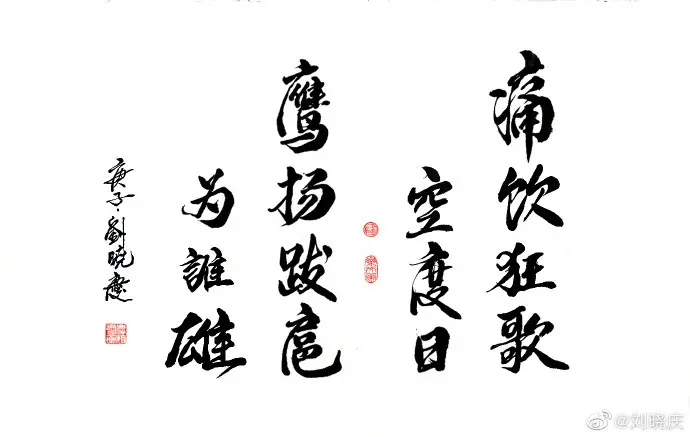 痛饮狂歌
空度日
鹰扬跋扈
为誰雄
庚子·劉晓慶
@刘晓庆